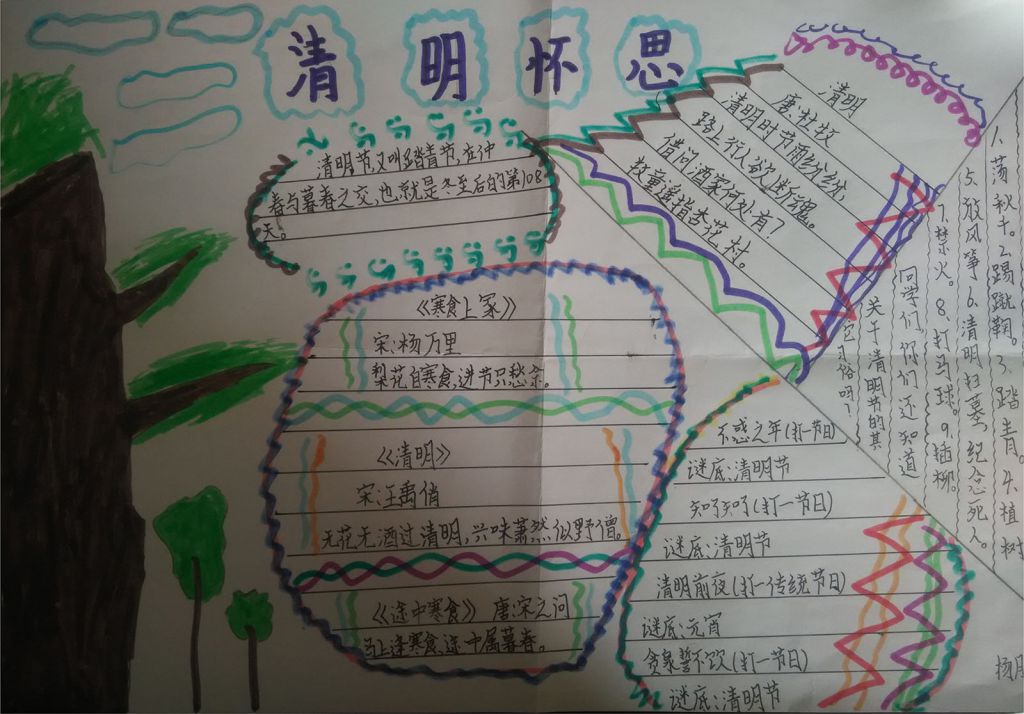 清明怀思
清明节又叫踏青节,在仲
春与暮春之交,也就是冬至后的第108
天。
清明
唐:杜牧
清明时节雨纷纷,
路上行人欲断魂。
借问酒家何处有?
牧童遥指杏花村。
《寒食上冢》
宋:杨万里
梨花自寒食,进节只愁余。
《清明》
宋:王禹偁
无花无酒过清明,兴味萧然似野僧。
《途中寒食》 唐:宋之问
马上逢寒食,途中属暮春。
同学们,你们还知道
关于清明节的其
它习俗吗?
1、荡秋千。2、踢蹴鞠。3、踏青。4、植树
5、放风筝6、清明扫墓,纪念死人。
7、禁火。8、打马球。9、插柳。
不惑之年(打一节日)
谜底:清明节
知了知了(打一节日)
谜底:清明节
清明前夜(打一传统节日)
谜底:元宵
贪泉誓不饮(打一节日)
谜底:清明节